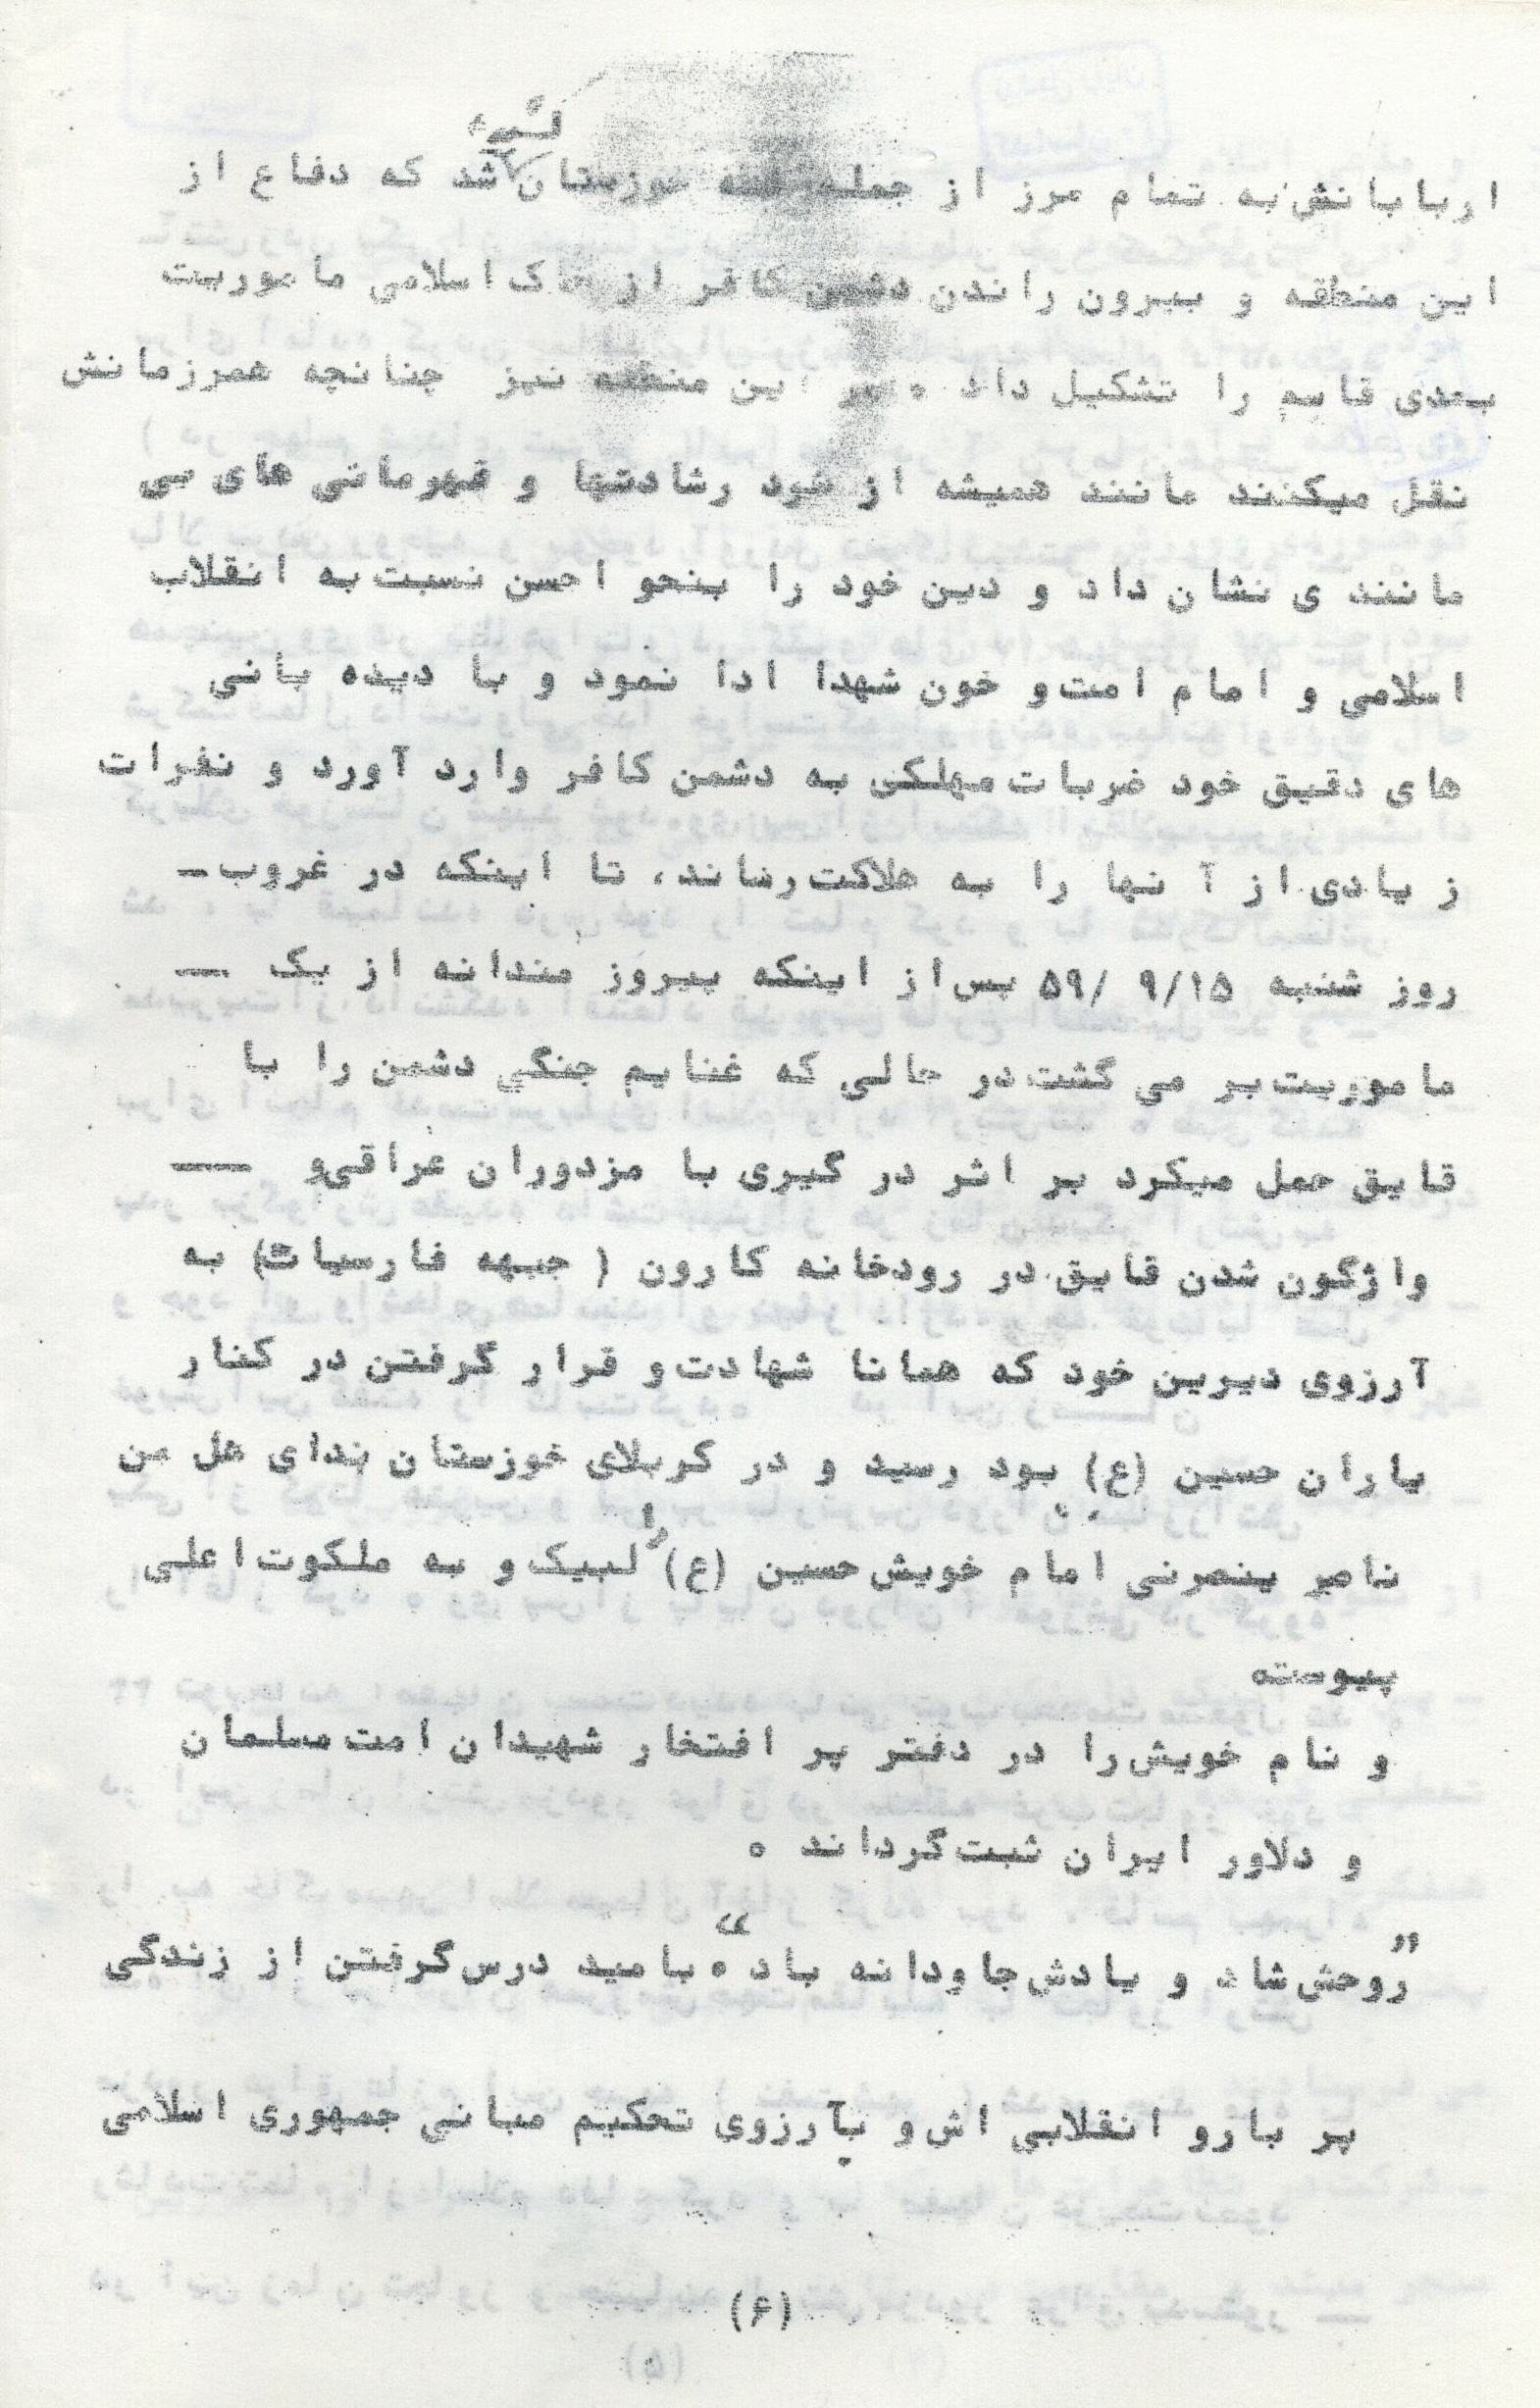 اربابانش به تمام مرز از جمله خوزستان کشیده شد که دفاع از
این منطقه و بیرون راندن دشمن کافر از خاک اسلامی ماموریت
بعدی قایم را تشکیل داد ه در این منطقه نیز چنانچه همرزمانش
نقل میکنند مانند همیشه از خود رشادتها و قهرمانی های بی
مانند ی نشان داد و دین خود را بنحو احسن نسبت به انقلاب
اسلامی و امام امت و خون شهدا ادا نمود و با دیده بانی
های دقیق خود ضربات مهلکی به دشمن کافر وارد آورد و نفرات
زیادی از آ نها را به هلاکت رساند، تا اینکه در غروب -
روز شنبه ۹/۱۵ /۵۹ پس از اینکه پیروز مندانه از یک —
ماموریت بر می گشت در حالی که غنایم جنگی دشمن را با
قایق حمل میکرد بر اثر در گیری با مزدوران عراقی و —
واژگون شدن قایق در رودخانه کارون ( جبهه فارسیات) به
آرزوی دیرین خود که همانا شهادت و قرار گرفتن در کنار
یاران حسین (ع) بود رسید و در کربلای خوزستان ندای هل من
ناصر ینصرنی امام خویش حسین (ع) را لبیک و به ملکوت اعلی
پیوسته
و نام خویش را در دفتر پر افتخار شهیدان امت مسلمان
و دلاور ایران ثبت گرداند ه
"روحش شاد و یادش جاودانه باد ه" بامید درس گرفتن از زندگی
پر بارو انقلابی اش و بآرزوی تحکیم مبانی جمهوری اسلامی
(۶)